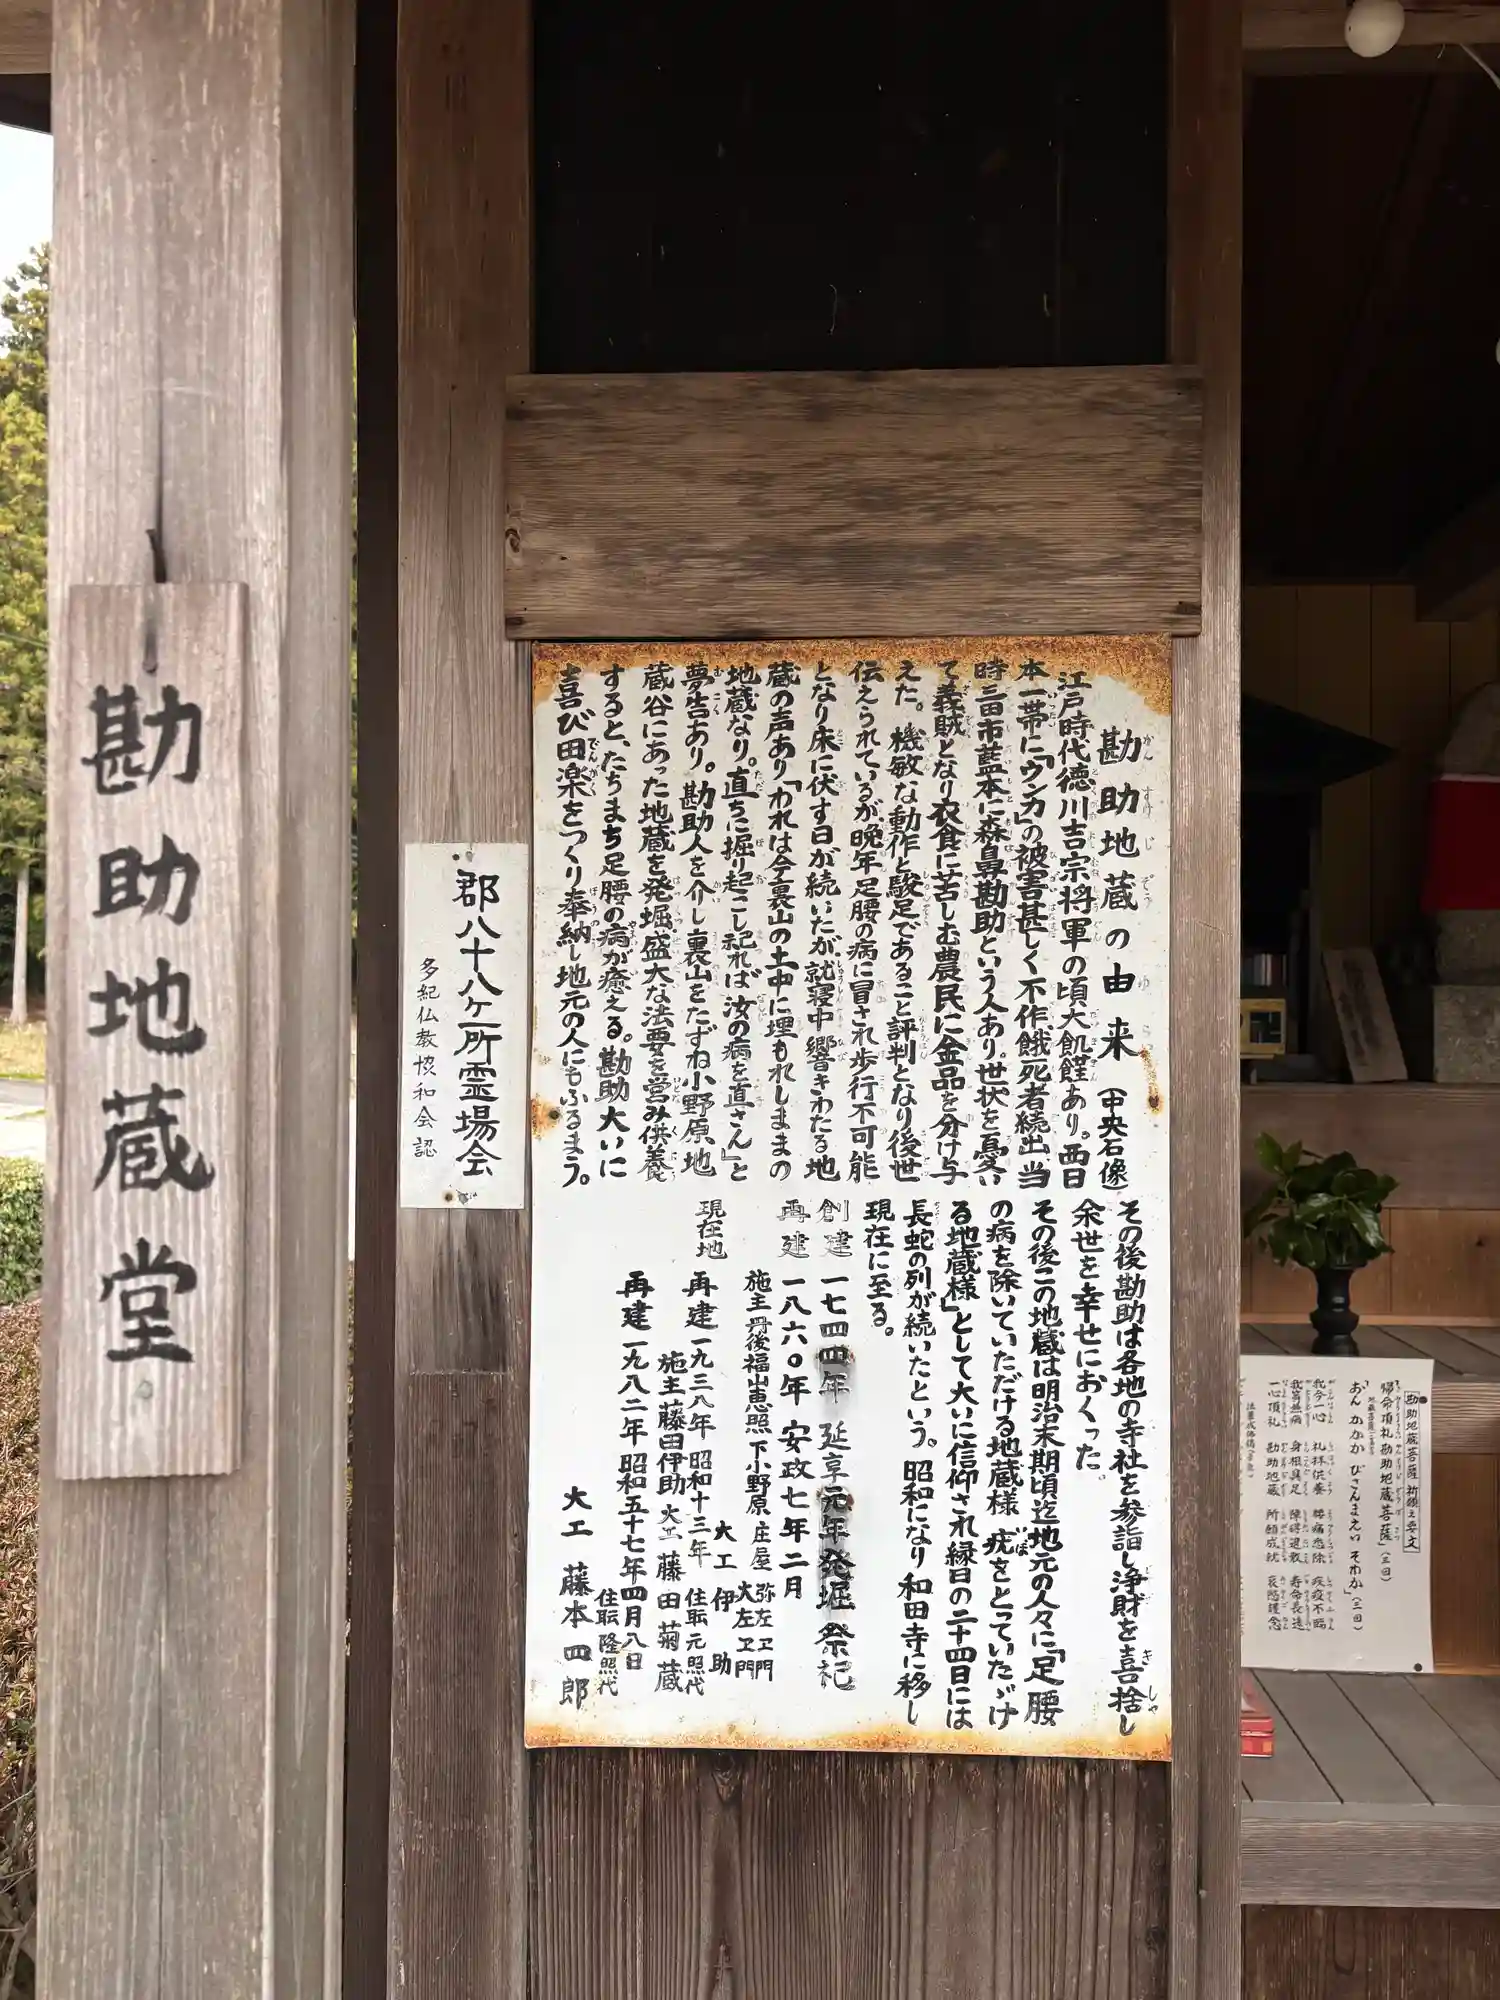 勘助地蔵堂
郡八十八ヶ所霊場会
多紀仏教協和会認
勘助地蔵の由来(中央石像)
江戸時代徳川吉宗将軍の頃大飢饉あり。西日
本一帯に「ウンカ」の被害甚しく不作餓死者続出、当
時三田市藍本に森鼻勘助という人あり。世状を憂い
て義賊となり衣食に苦しむ農民に金品を分け与
えた。機敏な動作と駿足であること評判となり後世
伝えられているが、晩年足腰の病に冒され歩行不可能
となり床に伏す日が続いたが就寝中響きわたる地
蔵の声あり「われは今裏山の土中に埋もれしままの
地蔵なり。直ちに掘り起こし祀れば汝の病を直さん」と
夢告あり。勘助人を介し裏山をたずね小野原地
蔵谷にあった地蔵を発堀、盛大な法要を営み供養
すると、たちまち足腰の病が癒える。勘助大いに
喜び田楽をつくり奉納し地元の人にもふるまう。
その後勘助は各地の寺社を参詣し浄財を喜捨し
余世を幸せにおくった。
その後この地蔵は明治末期頃迄地元の人々に「足腰
の病を除いていただける地蔵様 疣をとっていたゞけ
る地蔵様」として大いに信仰され縁日の二十四日には
長蛇の列が続いたという。昭和になり和田寺に移し
現在に至る。
創建 一七四四年 延享元年発堀祭祀
再建 一八六〇年 安政七年二月
施主丹後福山恵照 下小野原 庄屋 弥左ヱ門 大左ヱ門
大工 伊助
現在地 再建 一九三八年 昭和十三年 住転元照代
施主藤田伊助 大工 藤田菊蔵
再建 一九八二年昭和五十七年四月八日
住転隆照代
大工 藤本四郎
勘助地蔵菩薩 祈願之要文
帰命頂礼勘助地蔵菩薩」(三回)
「おん かかか びさんまえい そわか」(三回)
我今一心 礼拝供養 腰痛悉除 疾疫不臨
我等無病 身根具足 障碍退散 寿命長遠
一心頂礼 勘助地蔵 所願成就 哀愍護念